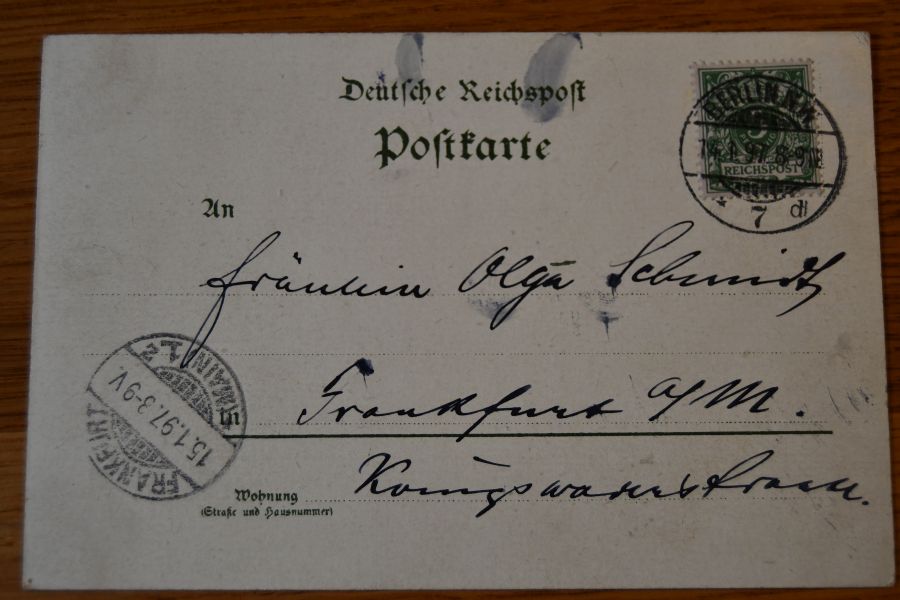 Deutsche Reichspost
Postkarte
BERLIN N.W.
14.1.97.8-9N
5
REICHSPOST
7 d
An
Fräulein Olga Schmidt
FRANKFURT
15.1.97.8-9V.
(MAIN) 1.
in
Frankfurt a/M.
Wohnung
(Straße und Hausnummer)